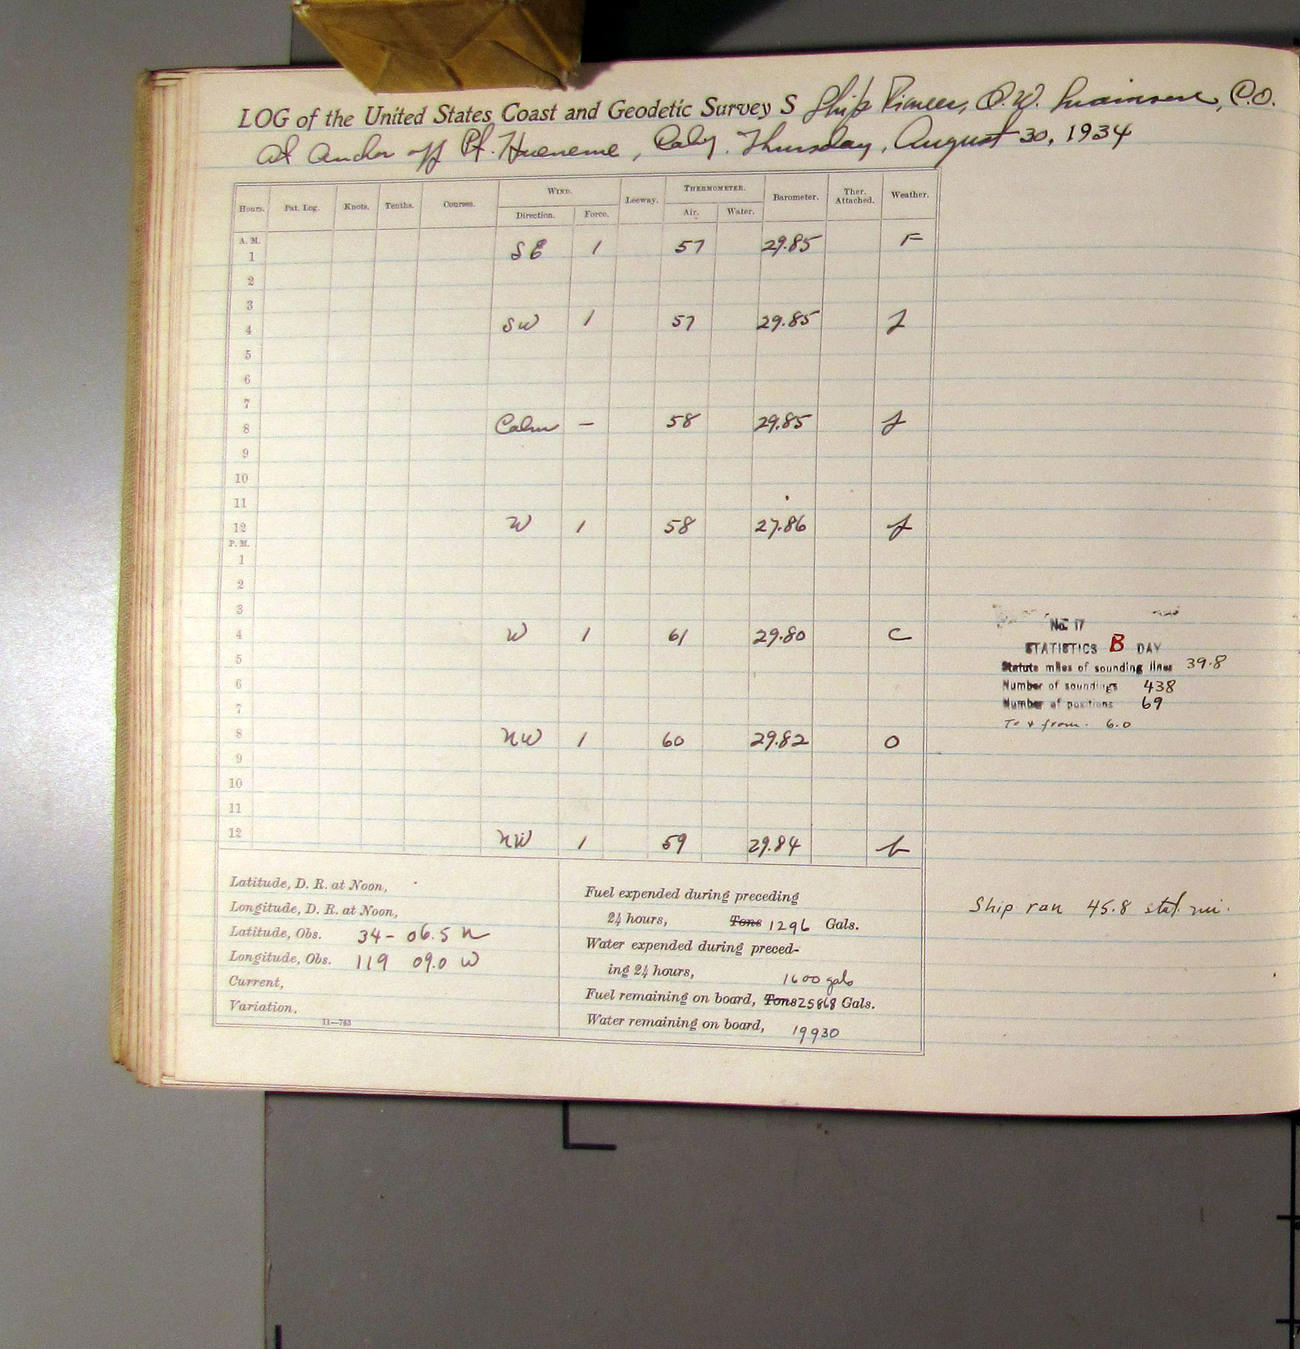 LOG of the United States Coast and Geodetic Survey S Ship Pioneer, O.W. Swainson, C.O.
at anchor off Pt. Hueneme, Calif. Thursday, August 30, 1934
Hours. Pat. Log. Knots. Tenths. Courses. WIND. Leeway. THERMOMETER. Barometer. Ther. Attached. Weather.
Direction. Force. Air. Water.
A. M.
1 SE 1 57 29.85 F
2
3
4 SW 1 57 29.85 f
5
6
7
8 Calm — 58 29.85 f
9
10
11
12 W 1 58 27.86 f
P. M.
1
2
3
4 W 1 61 29.80 C
5
6
7
8 NW 1 60 29.82 O
9
10
11
12 NW 1 59 29.84 b
No. 17
STATISTICS B DAY
Statute miles of sounding lines 39.8
Number of soundings 438
Number of positions 69
To & from. 6.0
Ship ran 45.8 stat. mi.
Latitude, D. R. at Noon,
Longitude, D. R. at Noon,
Latitude, Obs. 34- 06.5 N
Longitude, Obs. 119 09.0 W
Current,
Variation,
11—783
Fuel expended during preceding
24 hours, Tons 1296 Gals.
Water expended during preced-
ing 24 hours, 1600 gals
Fuel remaining on board, Tons 25868 Gals.
Water remaining on board, 19930